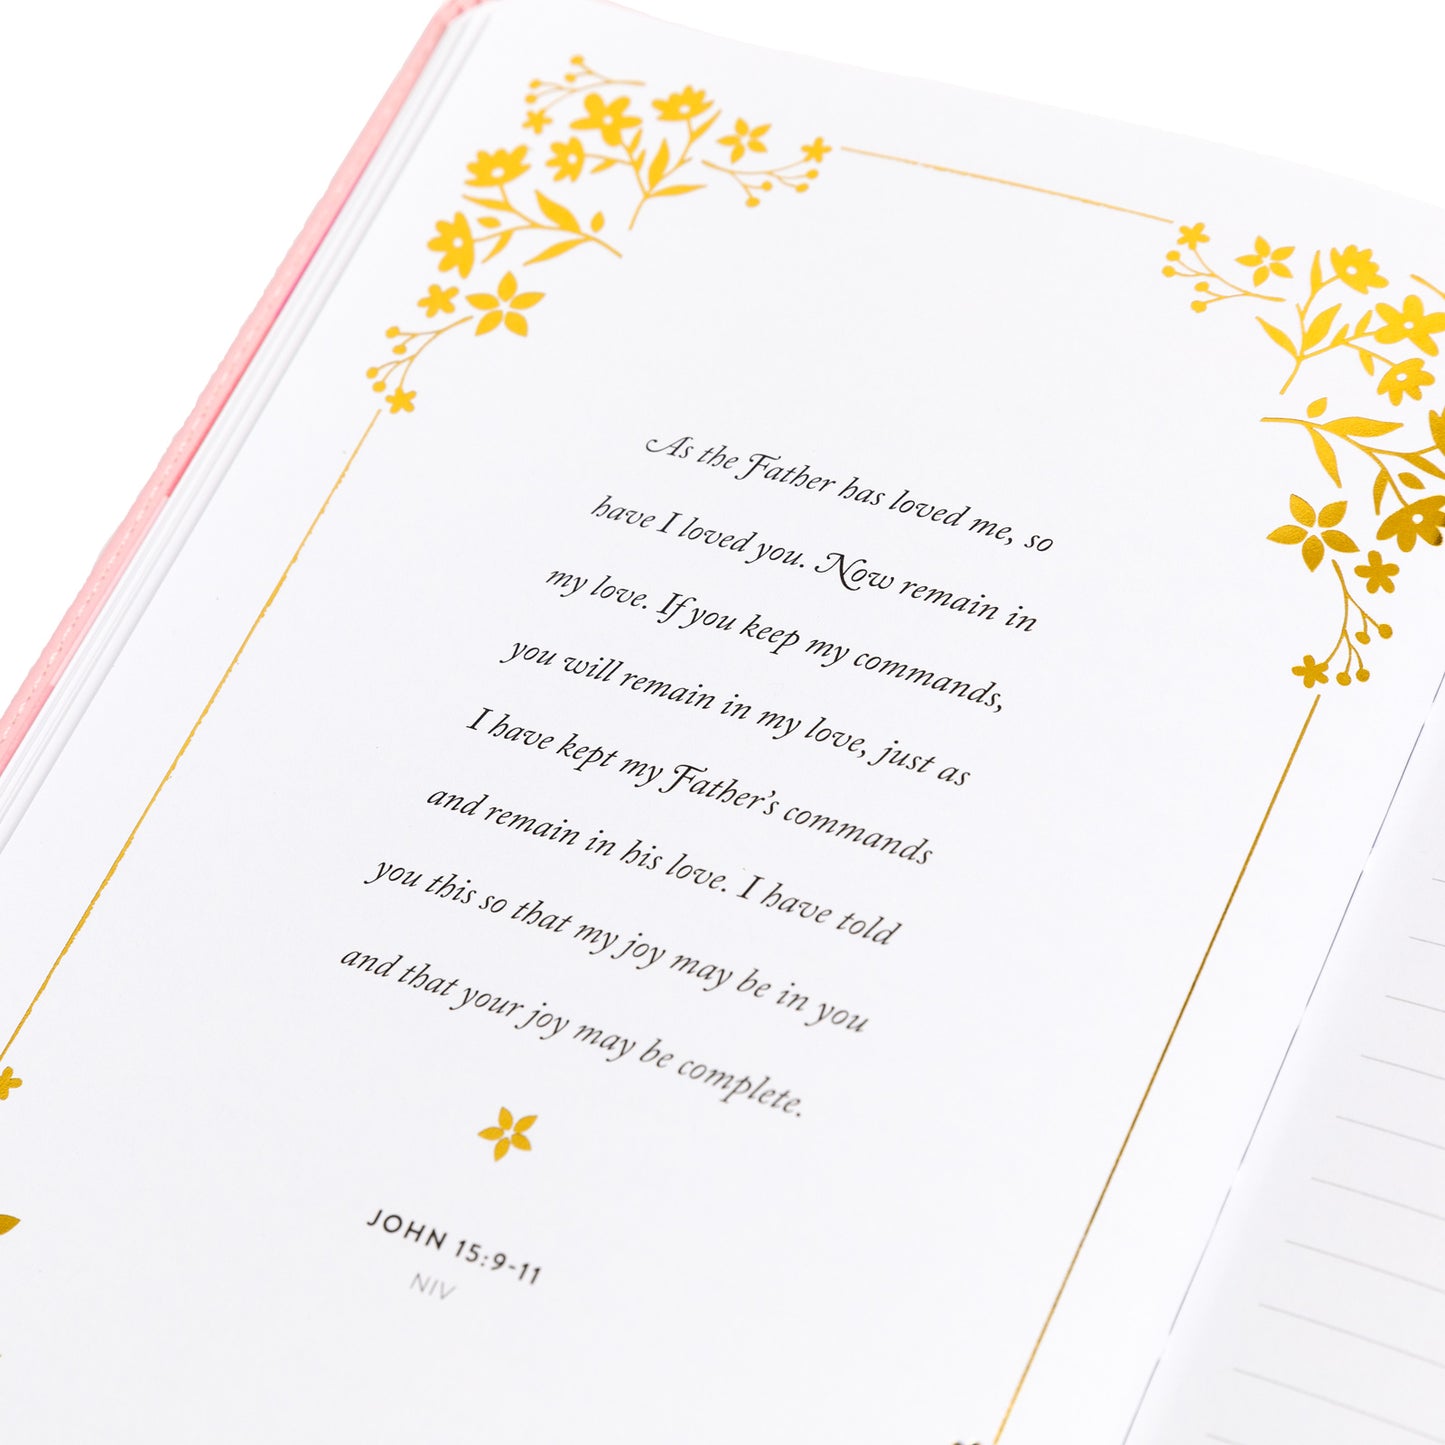 As the Father has loved me, so
have I loved you. Now remain in
my love. If you keep my commands,
you will remain in my love, just as
I have kept my Father’s commands
and remain in his love. I have told
you this so that my joy may be in you
and that your joy may be complete.
JOHN 15:9-11
NIV